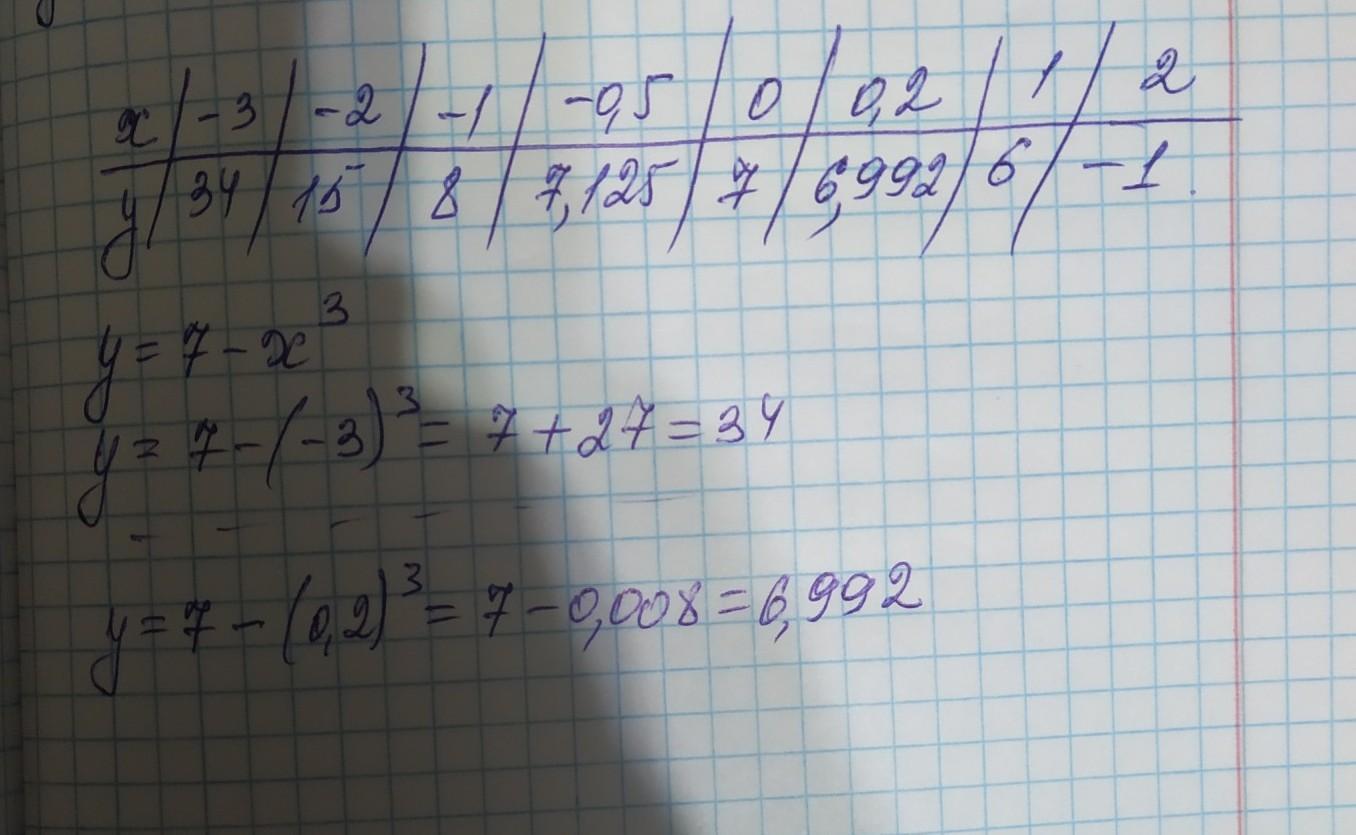 x | -3 | -2 | -1 | -0,5 | 0 | 0,2 | 1 | 2
y | 34 | 15 | 8 | 7,125 | 7 | 6,992 | 6 | -1.
y = 7 - x³
y = 7 - (-3)³ = 7 + 27 = 34
- - - - - -
y = 7 - (0,2)³ = 7 - 0,008 = 6,992